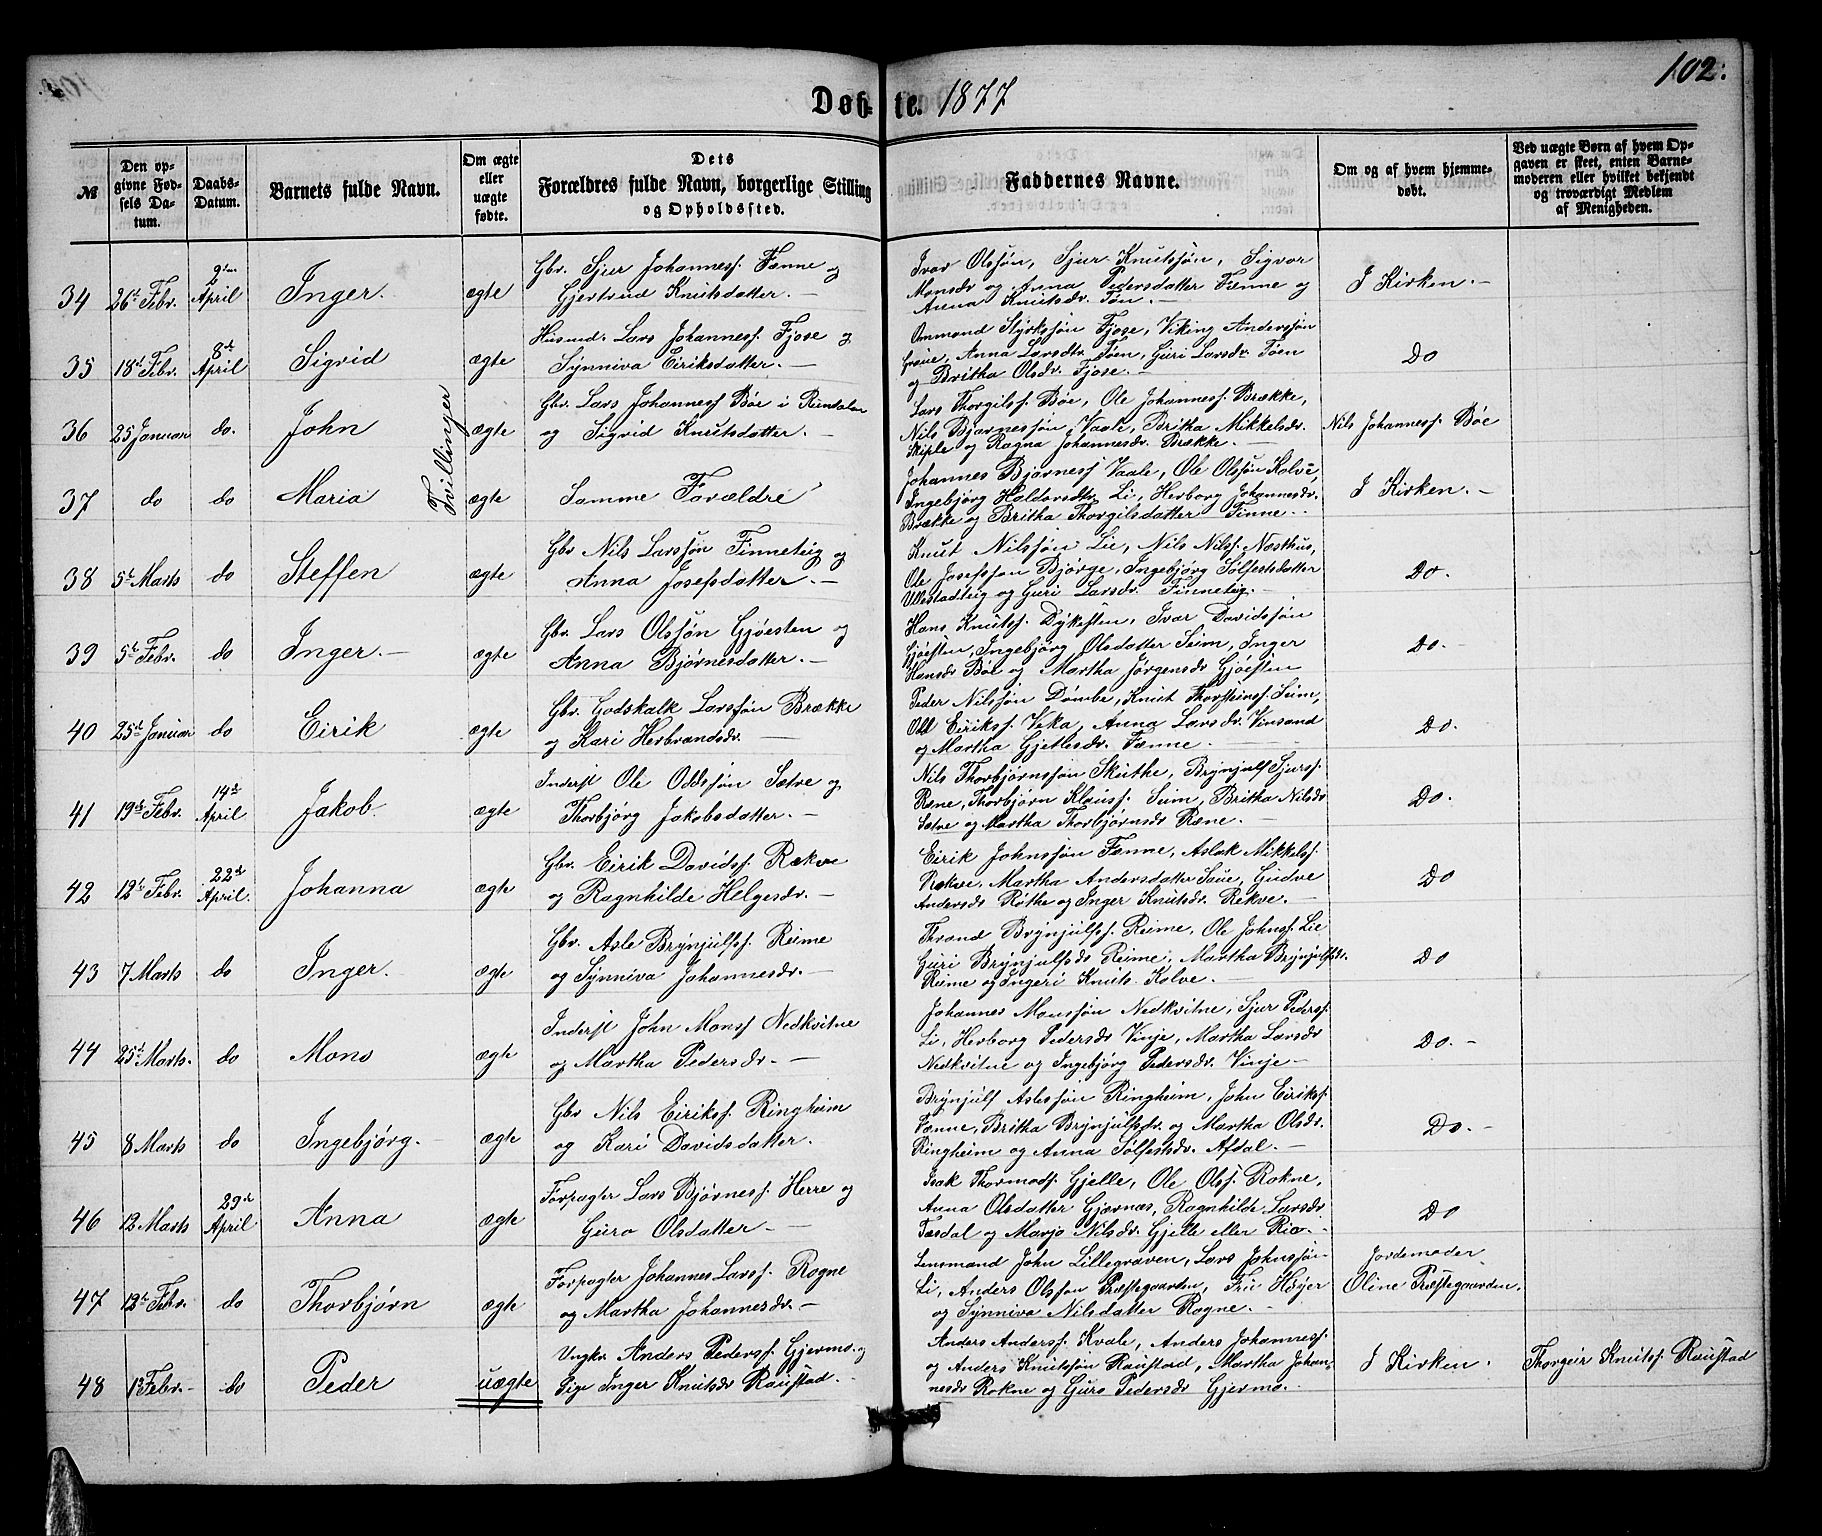 102.
Døb-te. 1877
№
Den op-
givne Fød-
sels Da-
tum.
Daabs-
Datum.
Barnets fulde Navn.
Om ægte
eller
uægte
fødte.
Dets
Forældres fulde Navn, borgerlige Stilling
og Opholdssted.
Faddernes Navne.
Om og af hvem hjemme-
døbt.
Ved uægte Børn af hvem Op-
gaven er skeet, enten Barne-
moderen eller hvilket bekjendt
og troværdigt Medlem
af Menigheden.
34 26de Febr. 2den April Inger. ægte
Gbr. Sjur Johannesf. Fenne og
Gjertrud Knutsdatter. —
Ivar Olssøn, Sjur Knutssøn, Sigvor
Monsdr og Anna Pedersdatter Fenne og
Anna Knutsdr. Tøn. —
I Kirken. —
35 18de Febr. 8de April Sigrid ægte
Husmd. Lars Johannesf. Fjose og
Synniva Eiriksdatter. —
Ommund Styrkssøn Fjose, Viking Anderssøn
Graue, Anna Larsdtr Tøen, Guri Larsdr. Tøen
og Britha Olsdr. Fjose. —
Do
36 25 Januar do. John ægte
Tvillinger
Gbr. Lars Johannesf Bøe i Rundalen
og Sigrid Knutsdatter. —
Lars Thorgilsf. Bøe, Ole Johannesf. Brække,
Nils Bjørnessøn Vaale, Britha Mikkelsdr.
Skiple og Ragna Johannesdr. Brække. —
Nils Johannesf. Bøe
37 do do Maria ægte
Samme Forældre
Johannes Bjørnesf Vaale, Ole Olssøn Kolve,
Ingebjørg Haldorsdtr Li, Herborg Johannesdr.
Brække og Britha Thorgilsdatter Finne.
I Kirken. —
38 5te Marts do Steffen ægte
Gbr Nils Larssøn Finneteig og
Anna Josefsdatter. —
Knut Nilssøn Lie, Nils Nilsf. Næsthus,
Ole Josefssøn Bjørge, Ingebjørg Sølfestsdatter
Ullestadteig og Guri Larsdr. Finneteig. —
Do.
39 5te Febr. do Inger. — ægte
Gbr. Lars Olssøn Gjøesten og
Anna Bjørnesdatter. —
Hans Knutsf. Dykesten, Ivar Davidssøn
Gjøesten, Ingebjørg Olsdatter Seim, Inger
Hansdr Bøe og Martha Jørgensdr Gjøesten
Do. —
40 25de Januar do Eirik ægte
Gbr. Godskalk Larssøn Brække
og Kari Herbrandsdr. —
Peder Nilssøn Dømbe, Knut Thorsteinsf. Seim,
Odd Eiriksf. Veka, Anna Larsdr. Vinsand
og Martha Gjetlesdr. Fenne. —
Do.
41 19de Febr. 14de April Jakob. ægte
Inderst Ole Oddssøn Sætre og
Thorbjørg Jakobsdatter. —
Nils Thorbjørnssøn Skuthe, Brynjulf Sjursf.
Rene, Thorbjørn Klausf. Seim, Britha Nilsdr
Sætre og Martha Thorbjørnsdr Rene. —
Do.
42 12te Febr. 22de April. Johanna ægte
Gbr. Eirik Davidsf. Rekve
og Ragnhilde Helgesdr. —
Eirik Johnssøn Fenne, Aslak Mikkelsf.
Rekve, Martha Andersdatter Saue, Gudve
Andersdr Røthe og Inger Knutsdr. Rekve. —
Do
43 7 Marts do Inger. ægte
Gbr. Asle Brynjulfsf. Reime
og Synniva Johannesdr. —
Thrond Brynjulfsf. Reime, Ole Johnsf. Lie
Guri Brynjulfsdr Reime, Martha Brynjulfsdr.
Reime og Ingeri Knuts. Kolve. —
Do
44 25de Marts. do Mons ægte
Inderst John Monsf Nedkvitne
og Martha Pedersdr. —
Johannes Monssøn Nedkvitne, Sjur Pedersf.
Li, Herborg Pedersdr Vinje, Martha Larsdr
Nedkvitne og Ingebjørg Pedersdr. Vinje —
Do. —
45 8 Marts do Ingebjørg. — ægte
Gbr Nils Eiriksf. Ringheim
og Kari Davidsdatter.
Brynjulf Aslessøn Ringheim, John Eiriksf.
Fenne, Britha Brynjulfsdr. og Martha Olsdr.
Ringheim og Anna Sølfestsdr. Afdal. —
Do. —
46 12 Marts 29de April Anna ægte
Forpagter Lars Bjørnesf. Herre og
Guro Olsdatter —
Isak Thormodsf. Gjelle, Ole Olsf. Rokne,
Anna Olsdatter Gjernæs, Ragnhilde Larsdr
Tesdal og Marjo Nilsdr. Gjelle eller Rio —
Do
47 12te Febr. do Thorbjørn ægte
Forpagter Johannes Larsf. Rogne
og Martha Johannesdr. —
Lensmand John Lillegraven, Lars Johnssøn
Li, Anders Olssøn Præstegaarden, Fru Høyer
og Synniva Nilsdatter Rogne. —
Jordemoder
Oline Præstegaarden.
48 13 Febr. — do Peder uægte
Ungkr. Anders Pedersf. Gjermo og
Pige Inger Knutsdr Raustad. —
Anders Andersf. Kvale, Anders Johannesf.
og Anders Knutssøn Raustad, Martha Johan-
nesdr Rokne og Guro Pedersdr Gjermo. —
I Kirken.
Thorgeir Knutsf. Raustad